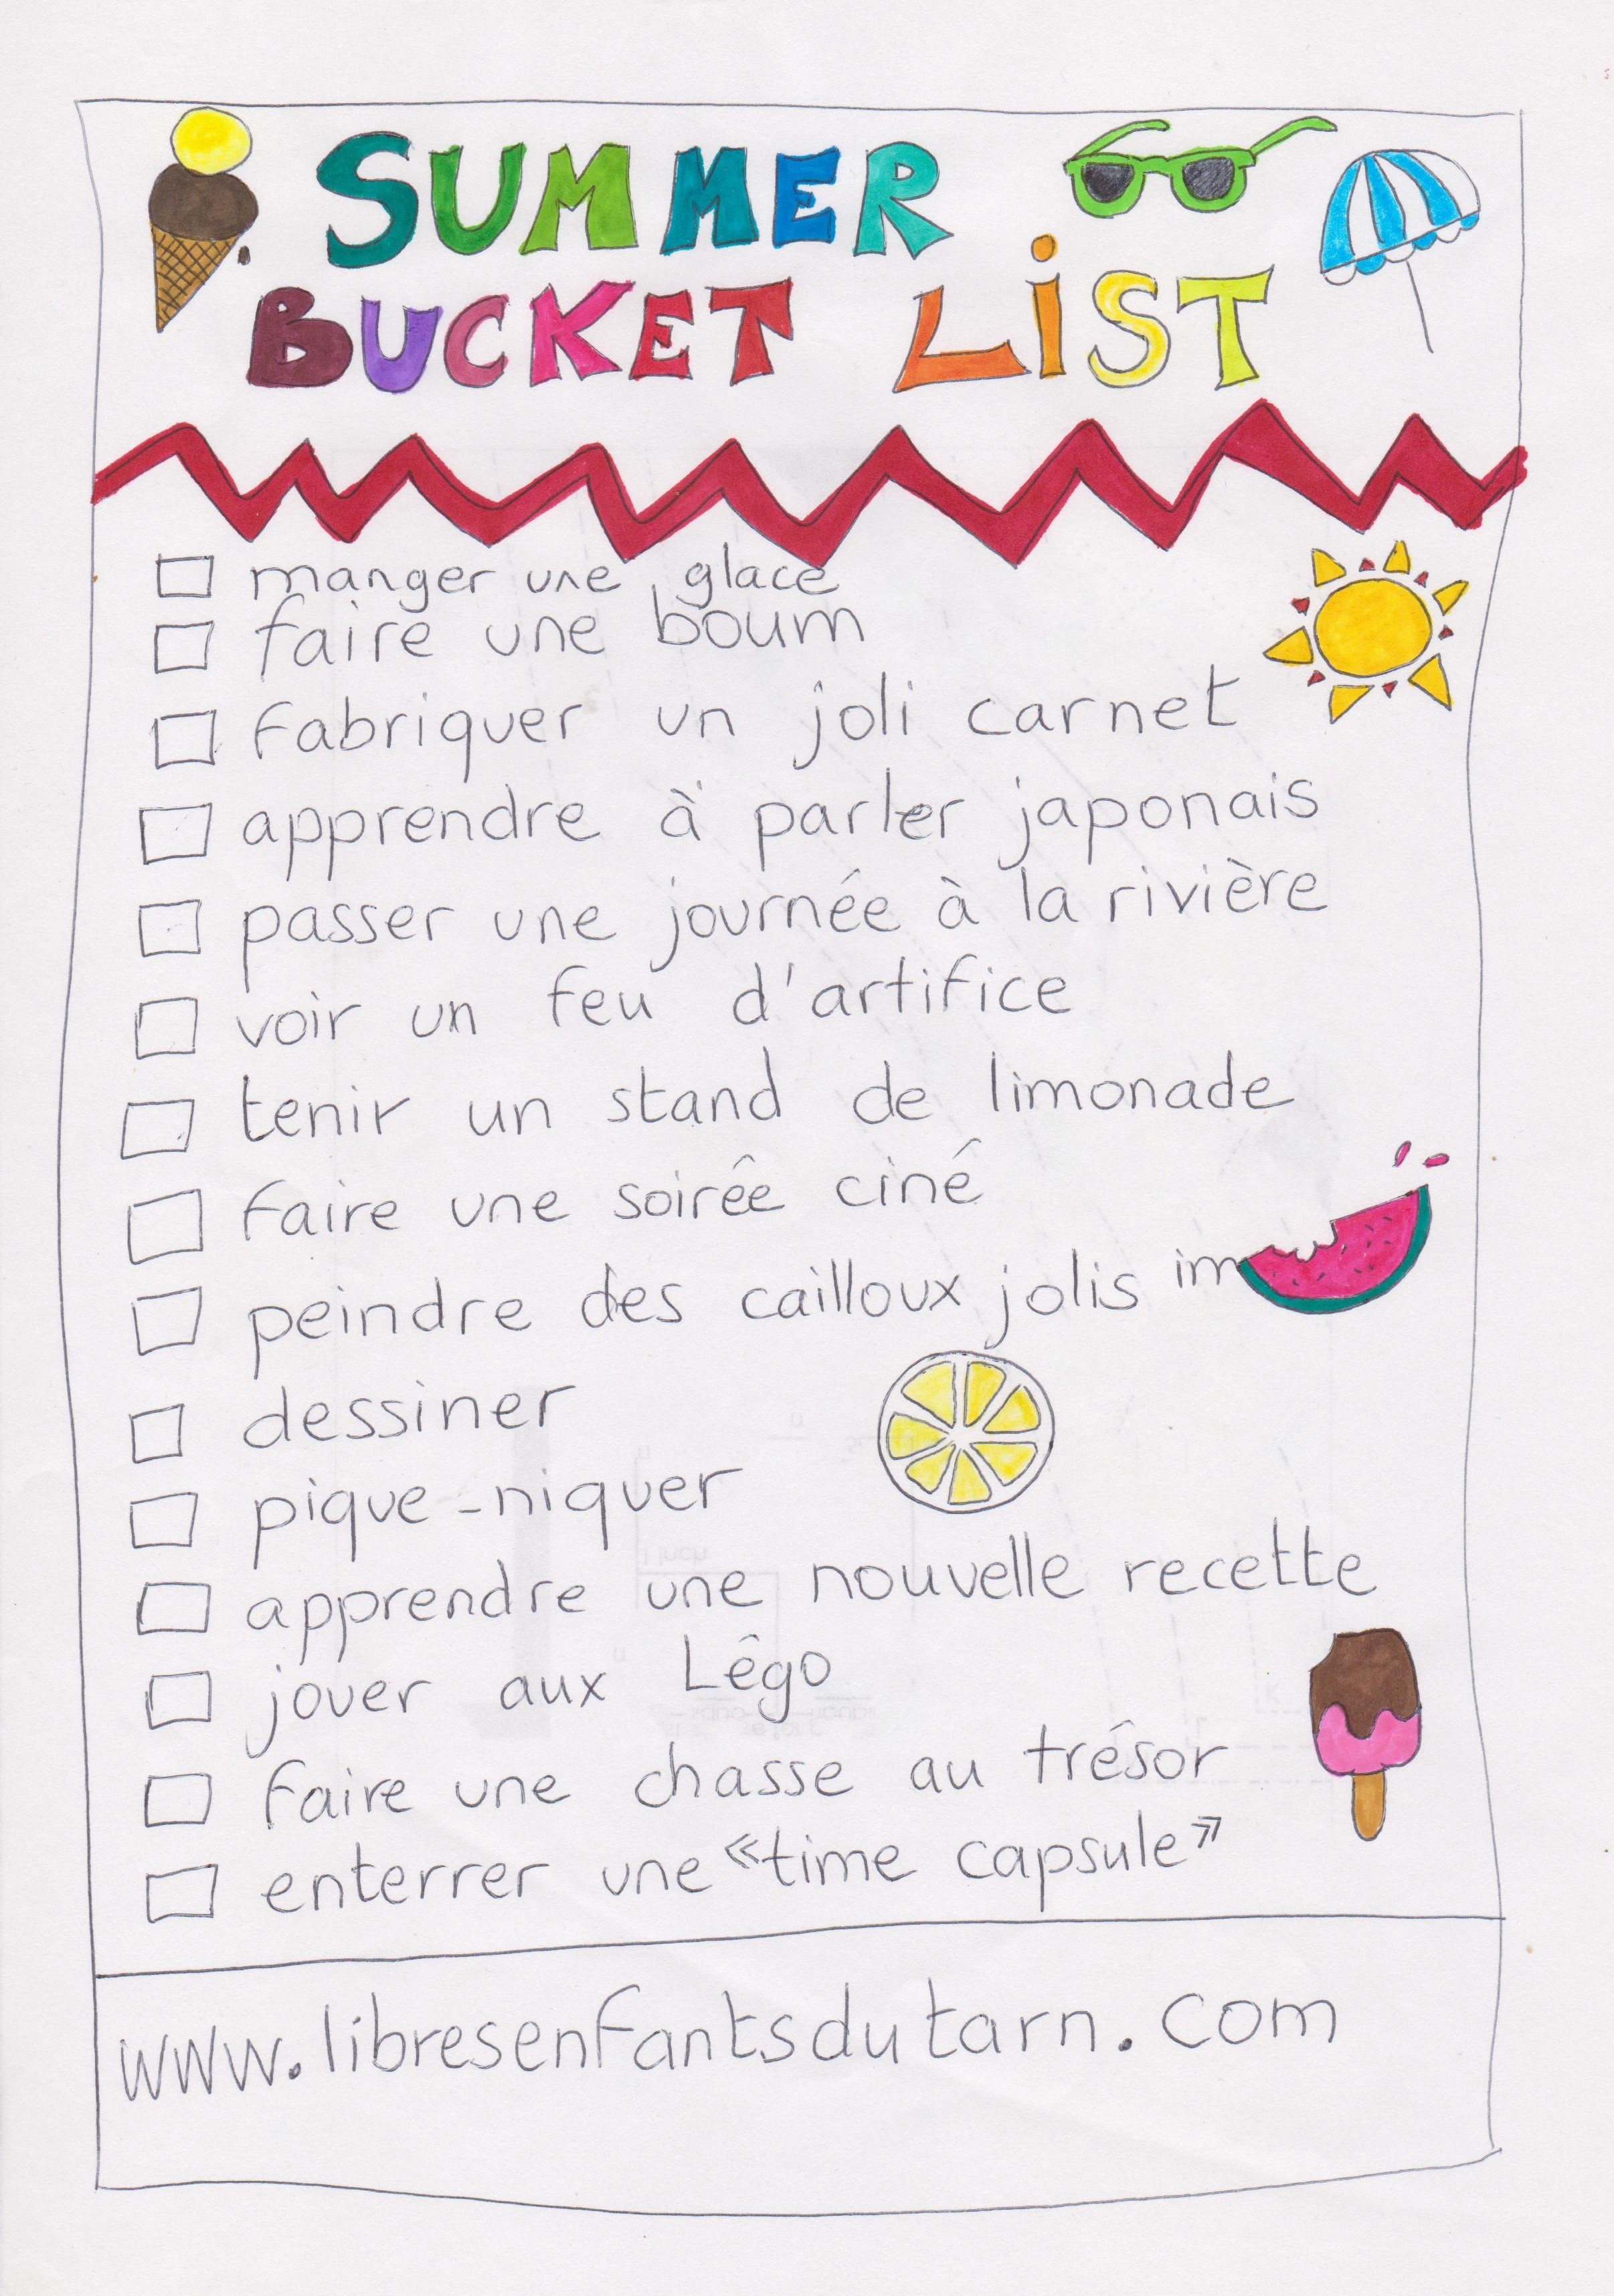 SUMMER
BUCKET LIST
manger une glace
faire une boum
fabriquer un joli carnet
apprendre à parler japonais
passer une journée à la rivière
voir un feu d'artifice
tenir un stand de limonade
faire une soirée ciné
peindre des cailloux jolis im
dessiner
pique-niquer
apprendre une nouvelle recette
jouer aux Légo
faire une chasse au trésor
enterrer une «time capsule»
www.libresenfantsdutarn.com